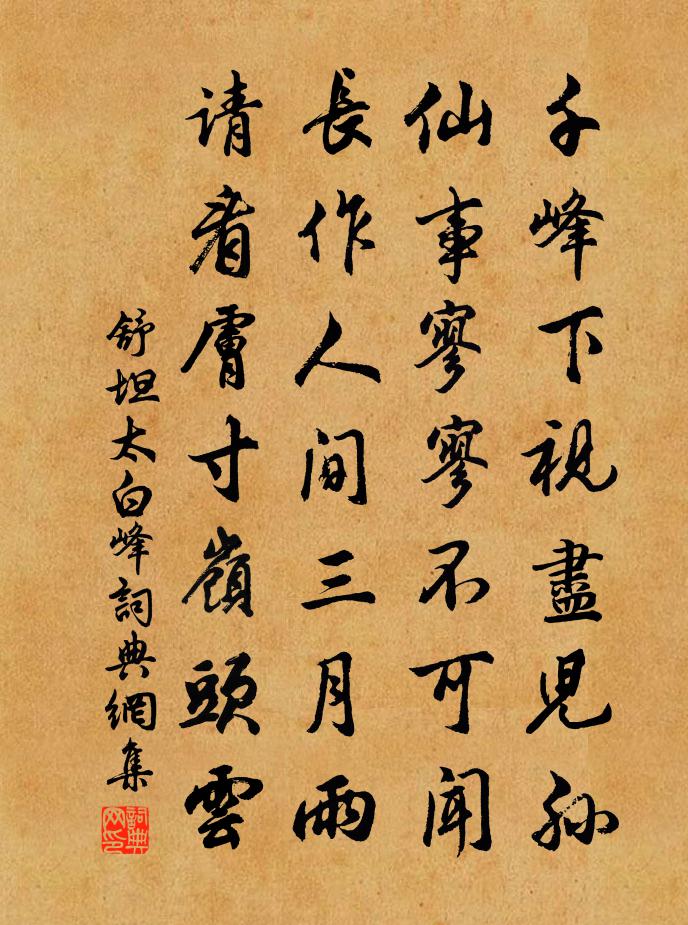 千峰下視盡児孙
仙事寥寥不可闻
長作人间三月雨
请看膚寸嶺頭雲
舒坦太白峰詞典網集
詞典网印